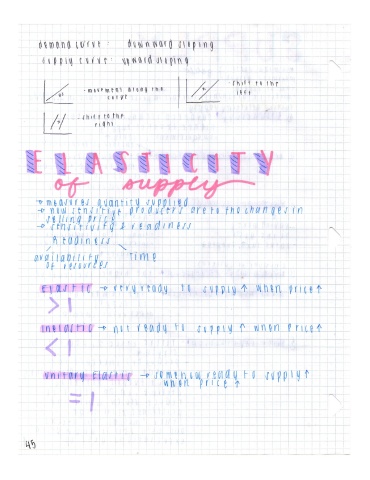 demand curve: downward sloping
supply curve: upward sloping
- movement along the curve
- shift to the left
- shift to the right
ELASTICITY
of supply
→ measures quantity supplied
→ how sensitive producers are to the changes in
selling price
→ sensitivity & readiness
Readiness
availability of resources
time
Elastic → very ready to supply ↑ when price ↑
> 1
Inelastic → not ready to supply ↑ when price ↑
< 1
Unitary Elastic → somehow ready to supply ↑
when price ↑
= 1
45